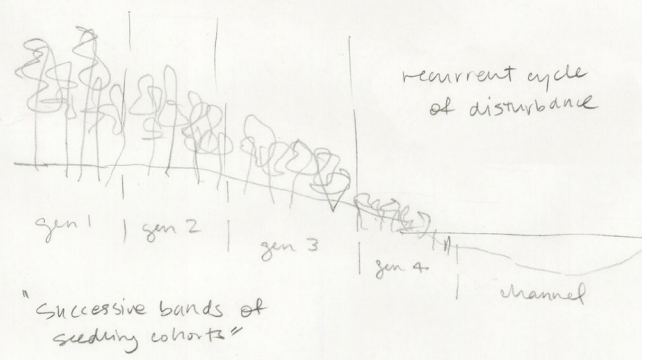 recurrent cycle
of disturbance
gen 1
gen 2
gen 3
gen 4
channel
"successive bands of
seedling cohorts"